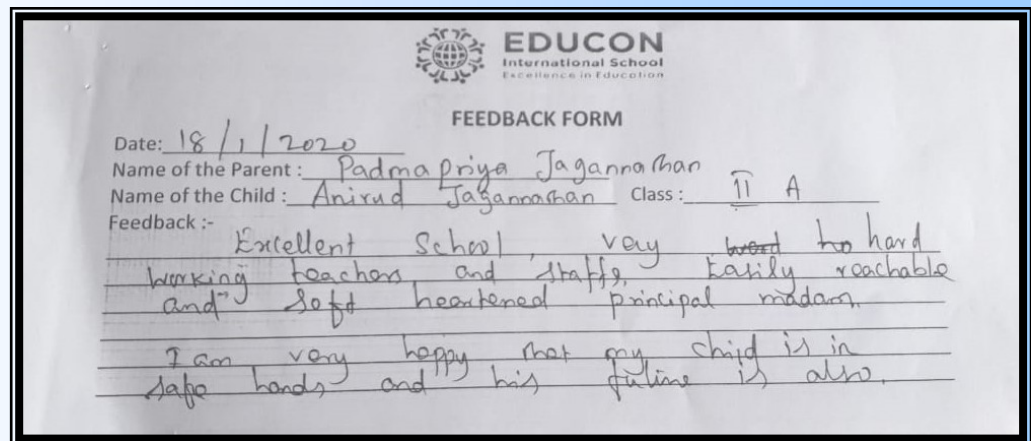 EDUCON
International School
Excellence in Education
FEEDBACK FORM
Date: 18/1/2020
Name of the Parent : Padma Priya Jagannathan
Name of the Child : Anirud Jagannathan Class : II A
Feedback :-
Excellent School, very hard
working teachers and staffs, Easily reachable
and soft heartened principal madam.
I am very happy that my child is in
safe hands and his future is also.